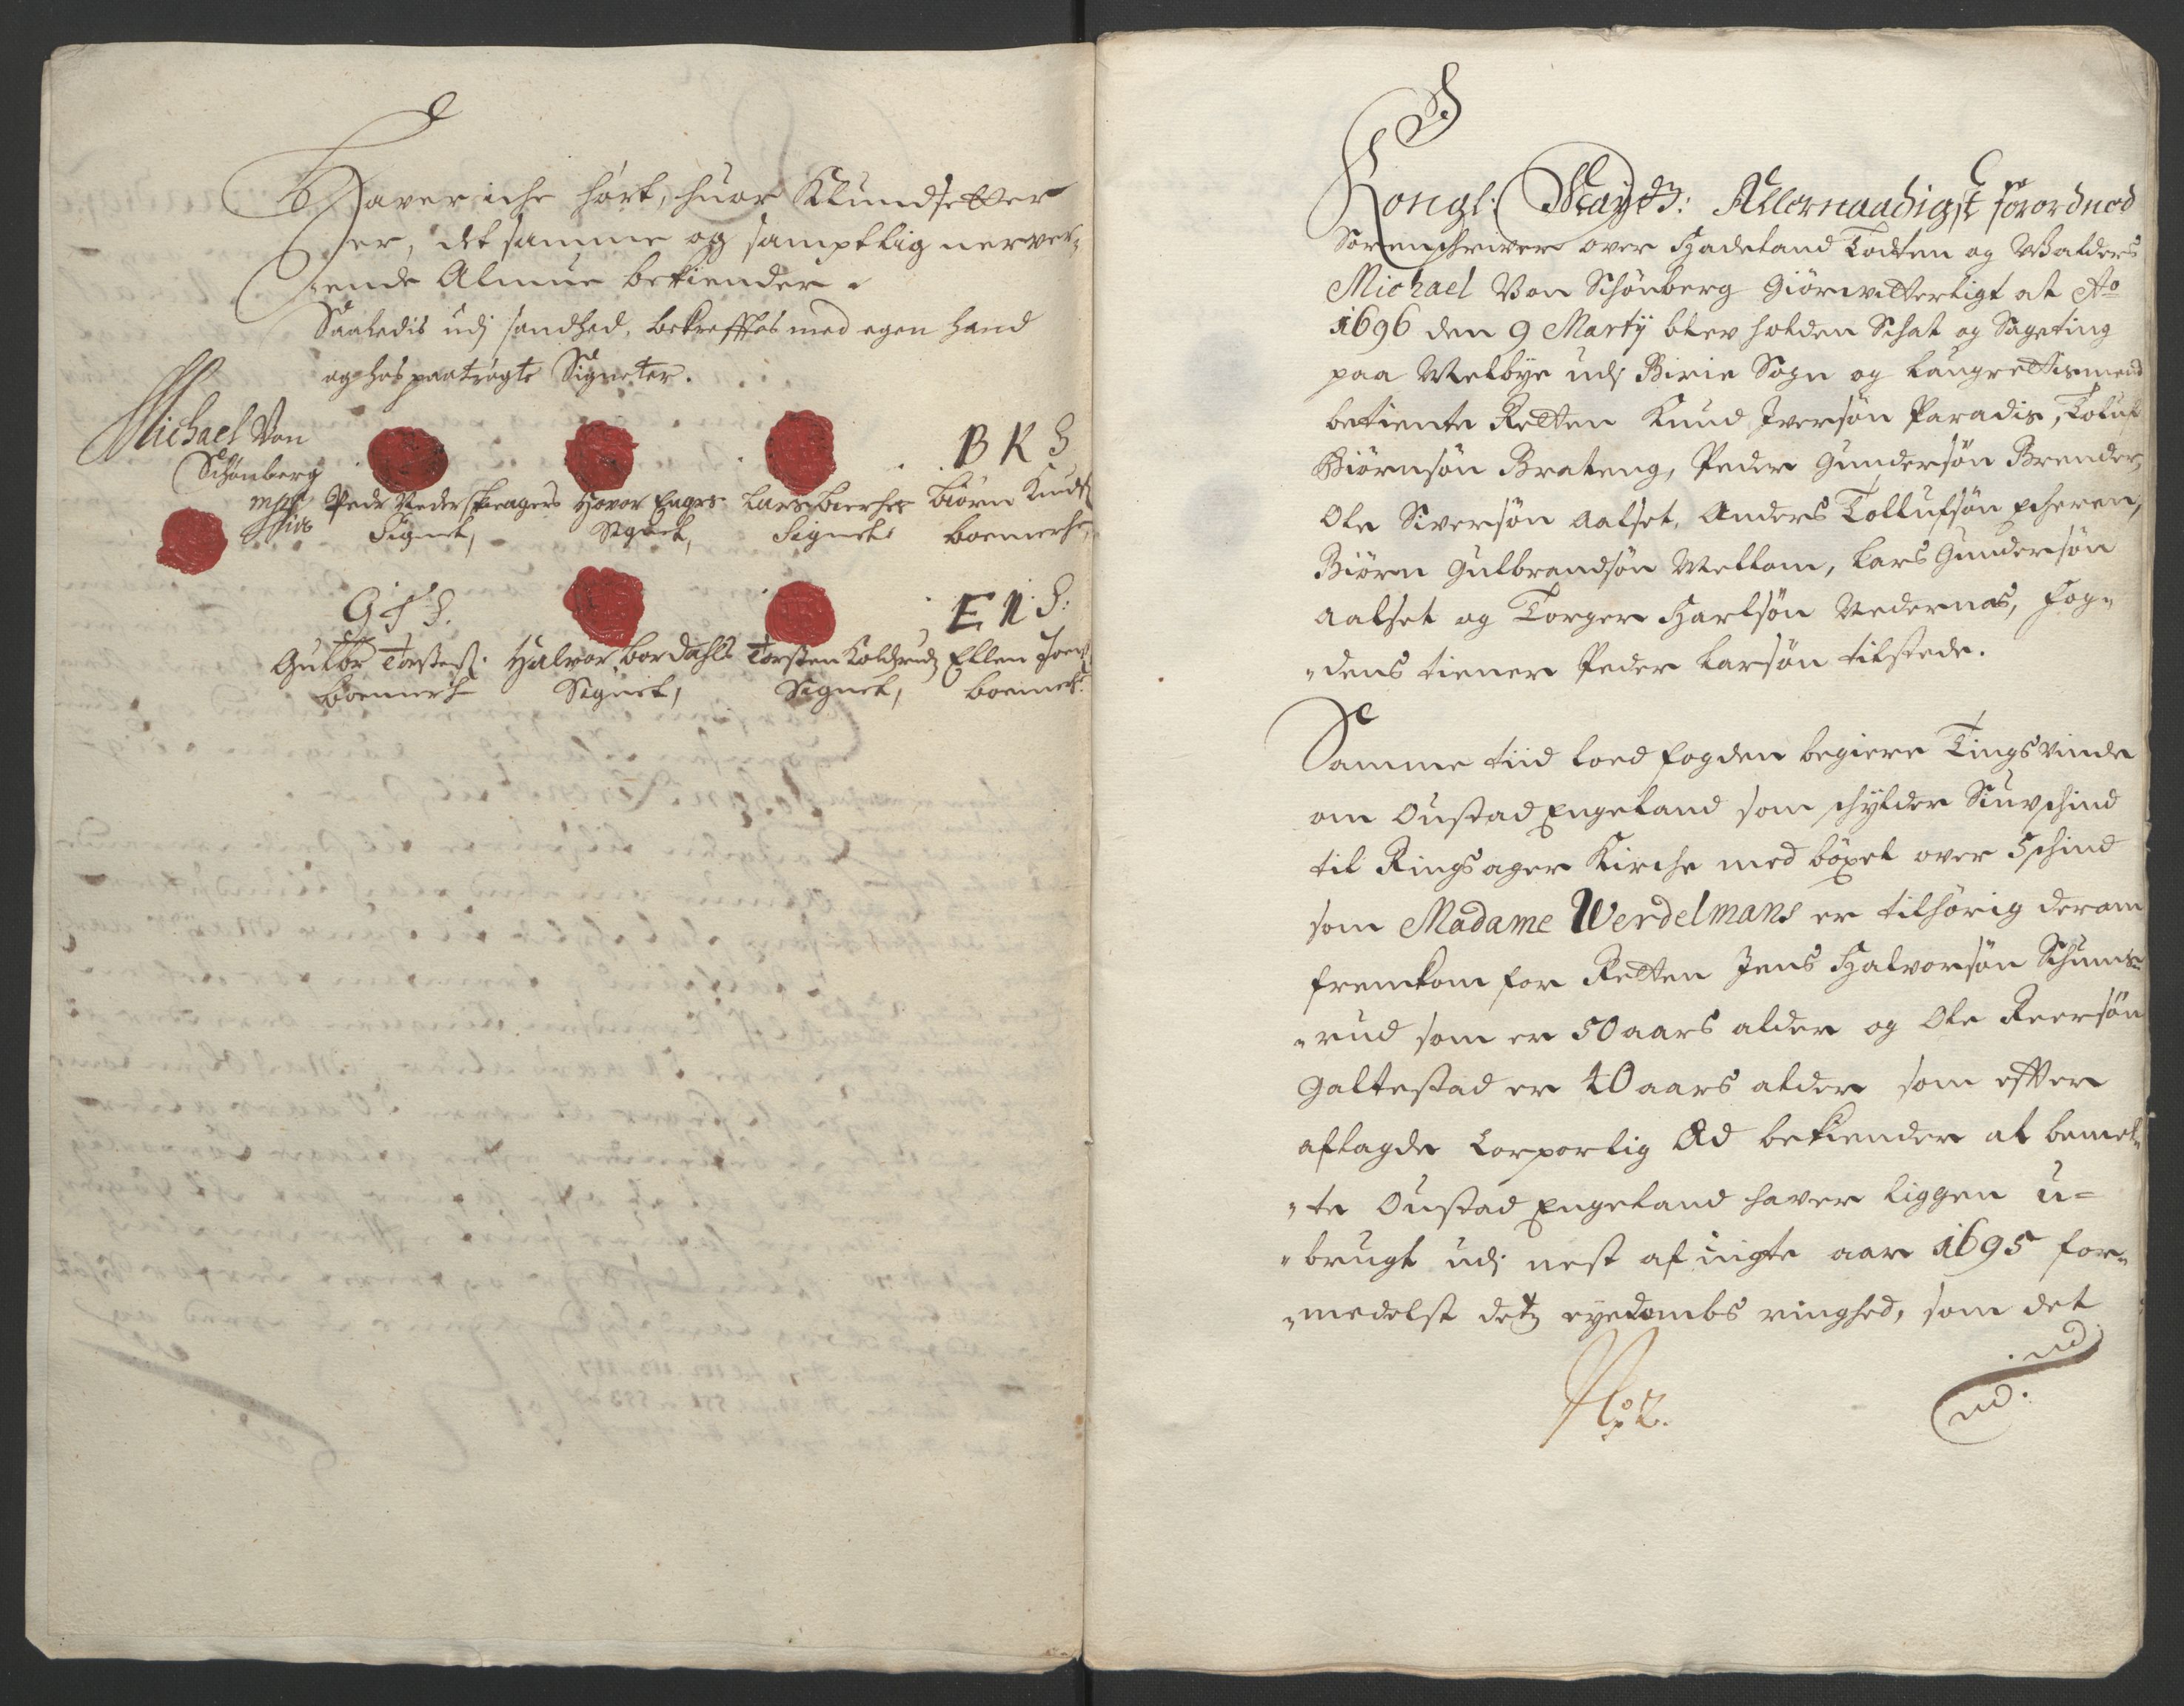 Haver iche hørt, huor Klundsetter
er, det samme og samptlig nerver-
ende Almue bekiender.
Saaledis udj sandhed, bekrefftes med egen hand
og hos paatrogte Signeter.
Michael Von
Schönberg
mppria
B K S
Peder Skragers
Signet,
Hovor Engers
Signet,
Lars Bierches
Signet,
Biørn Knuds:
boemerche,
G T S.
E N S:
Gulbr Torstens:
boemerch
Halvor Bordahls
Signet,
Torsten Koldsruds
Signet,
Ellen
boemerk:
Kongl: Mayts: Allernaadigst forordned
Sorenschriver over Hadeland Todten og Walders
Michael Von Schönberg Giør witterligt at Ao
1696 den 9 Martij blev holden Schat og Sageting
paa Melbye udj Birie Sogn og Laugrettismend
betiente Retten Knud Iversøn Paradis, Toluf
Biørnsøn Brateng, Peder Gundersøn Brender,
Ole Siversøn Aalset, Anders Tollufsøn Echeren,
Biørn Gulbrandsøn Mellom, Lars Gundersøn
Aalset og Torger Harlsøn Nedernas, fog-
dens tiener Peder Larsøn tilstede.
Samme tiid loed fogden begiere Tingsvinde
om Oustad Engeland som schylder 5 Schind
til Ringsager Kirche med böxel over 5 schind
som Madame Werdelmans er tilhörig derom
fremkom for Retten Jens Halvorsøn Schums-
rud som er 50 aars alder og Ole Reersøn
Galtestad er 40 aars alder som effter
aflagde Corporlig Æd bekiender at bemel-
te Oustad Engeland haver liggen u=
brugt udj nest afvigte aar 1695 for-
medelst detz eyedombs ringhed, som det
ud
ud.
No 2.